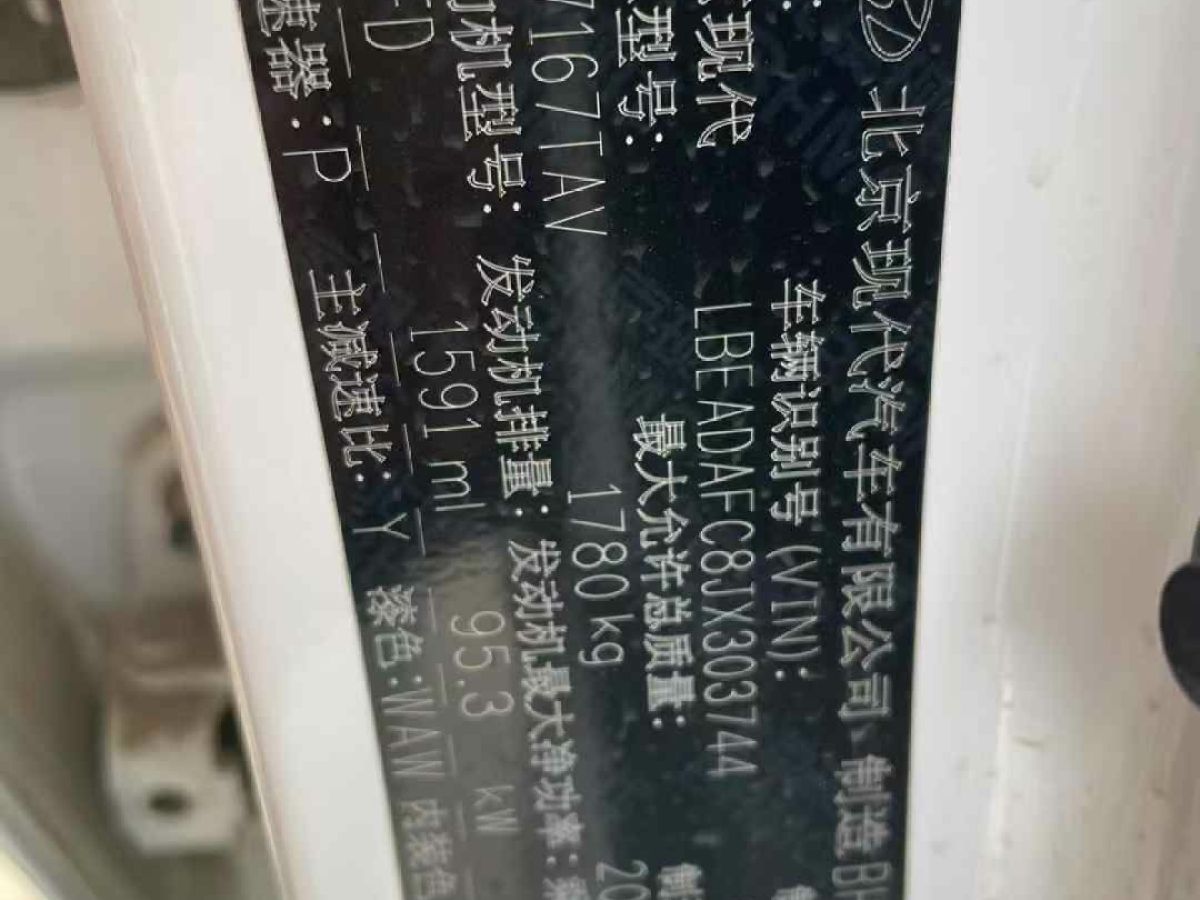 北京现代汽车有限公司 制造
现代
车辆识别号(VIN):
LBEADAFC8JX303744
型号:
最大允许总质量:
7167TAV
1780kg
动机型号:
发动机排量:
发动机最大净功率:
1591ml
95.3 kW
速器:P
主减速比:Y
漆色:WAW
内装色
20